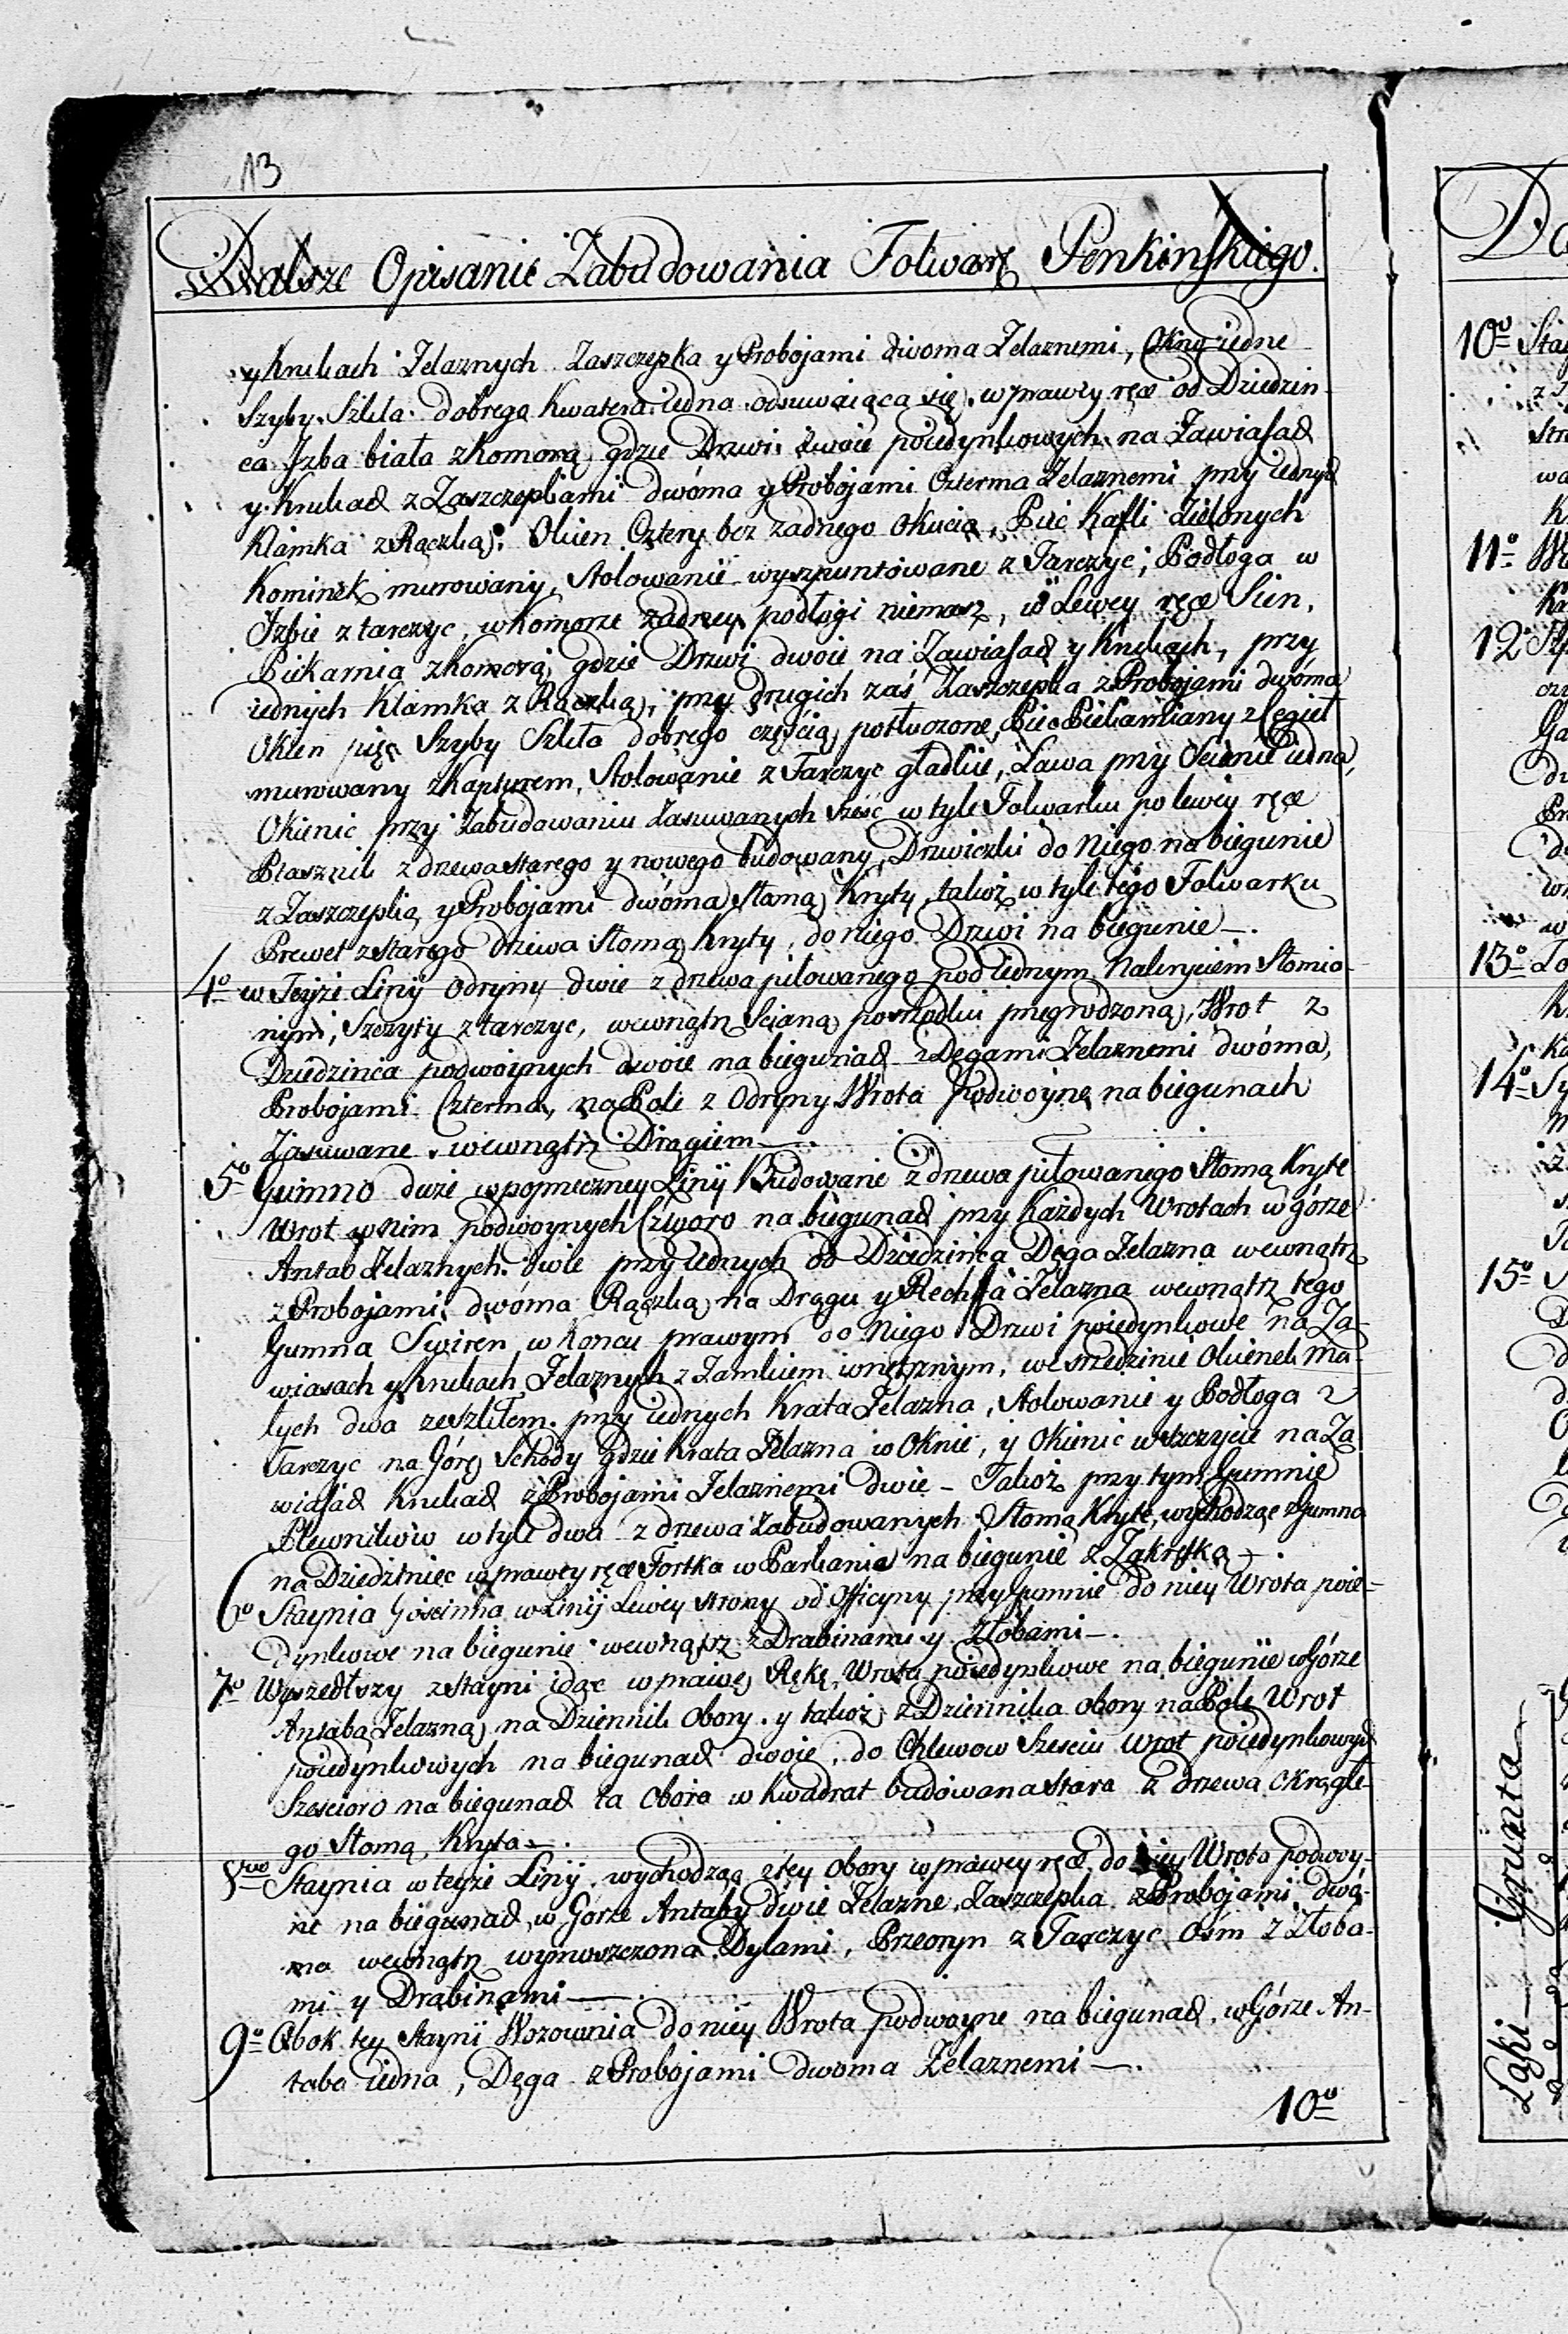 13
Dalsze Opisanie Zabudowania Folwarq Penkinskiego.
y krukach Zelaznych Zaszczepka y Probojami dwoma Zelaznemi, Okno iedne
Szyby Szkla dobrego kwatera iedna odsuwaiąca się, w prawey ręce od Dziedzin-
ca Izba biała z komorą, gdzie Drzwi dwoie poiedynkowych na Zawiasach
y Krukach z Zaszczepkami dwóma y Probojami Czterma Zelaznemi przy iednych
Klamka z Rączką, Okien Cztery bez zadnego okucia, Piec Kafli zielonych
Kominek murowany, Stolowanie wyszpuntowane z Tarczyc, Podłoga w
Izbie z tarczyc, w komorze zadney podłogi niemasz, w Lewey ręce Sien,
Piekarnia z komorą, gdzie Drzwi dwoie na Zawiasach y krukach, przy
iednych Klamka z Rączką, przy drugich zaś Zaszczepka z Probojami dwóma
Okien pięc Szyby Szkła dobrego częścią potłuczone, Piec Piekarniany z Cegieł
murowany z kapturem, Stolowanie z Tarczyc gładkie, Ława przy Scienie iedna,
Okienic przy Zabudowaniu zasuwanych sześć w tyle Folwarku po lewey ręce
Ptasznik z drzewa starego y nowego budowany, Drzwiczki do niego na biegunie
z Zaszczepką y Probojami dwóma Słomą kryty, takoż w tyle tego Folwarku
Prewet z starego drzewa Słomą kryty, do niego Drzwi na biegunie—.
4o w Teyże Liniy Odryny dwie z drzewa piłowanego pod iednym Nakryciem Słomia-
nym, Szczyty z tarczyc, wewnątrz Scianą posrzodku przegrodzoną, Wrot z
Dziedzinca podwoynych dwoie na biegunach z Dęgami Zelaznemi dwóma,
Probojami Czterma, na Pole z Odryny Wrota Podwoyne na biegunach
Zasuwane wewnątrz Drągiem—.
5o Gumno duże w poprzeczney Liniy Budowanie z drzewa piłowanego Słomą kryte
Wrot w nim podwoynych Czworo na biegunach przy Każdych Wrotach w górze
Antab Zelaznych dwie przy iednych od Dziedzińca Dęga Zelazna wewnątrz
z Probojami dwóma Rączką na Drągu y Rechwa Zelazna wewnątrz tego
Gumna Swiren w koncu prawym do Niego Drzwi poiedynkowe na Za-
wiasach y krukach Zelaznych z Zamkiem wnętrznym, we srzedzinie Okienek ma-
łych dwa ze szkłem przy iednych Krata Zelazna, Stolowanie y Podłoga z
Tarczyc na Górę Schody gdzie krata Zelazna w Oknie, y Okienic w szczycie na Za
wiasach krukach z Probojami Zelaznemi dwie – Takoż przy tym Gumnie
Plewnikow w tyle dwa z drzewa zabudowanych Słomą Kryte, wychodząc z Gumna
na Dziedziniec w prawey ręce Fortka w Parkanie na biegunie z Zakrętką—.
6o Staynia Gościnna w Liniy Lewey strony od Officyny przy Gumnie do niey Wrota poie-
dynkowe na biegunie wewnątrz z Drabinami y Złobami—.
7o Wyszedłszy z stayni idąc w prawę Rękę, Wrota poiedynkowe na biegunie w Górze
Antaba Zelazną na Dziennik Obory y takoż z Dziennika obory na Pole Wrot
poiedynkowych na biegunach dwoie, do Chlewow Szesciu wrot poiedynkowych
Szescioro na biegunach ta Obora w kwadrat budowana stara z drzewa okrągłe-
go Słomą kryta—.
8vo Staynia w teyże Liniy wychodząc z tey obory w prawey ręce do niey Wrota podwoy-
ne na biegunach w Górze Antaby dwie Zelazne, Zaszczepka z Probojami dwó-
ma wewnątrz wymoszczona Dylami, Przeoryn z Tarczyc Ośm z Złoba-
mi y Drabinami—.
9o Obok tey Stayni Wozownia do niey Wrota podwoyne na biegunach w Górze An-
taba iedna, Dęga z Probojami dwoma Zelaznemi—.
10o
10o
11o
12o
13o
14o
15o
Łąki — Grunta